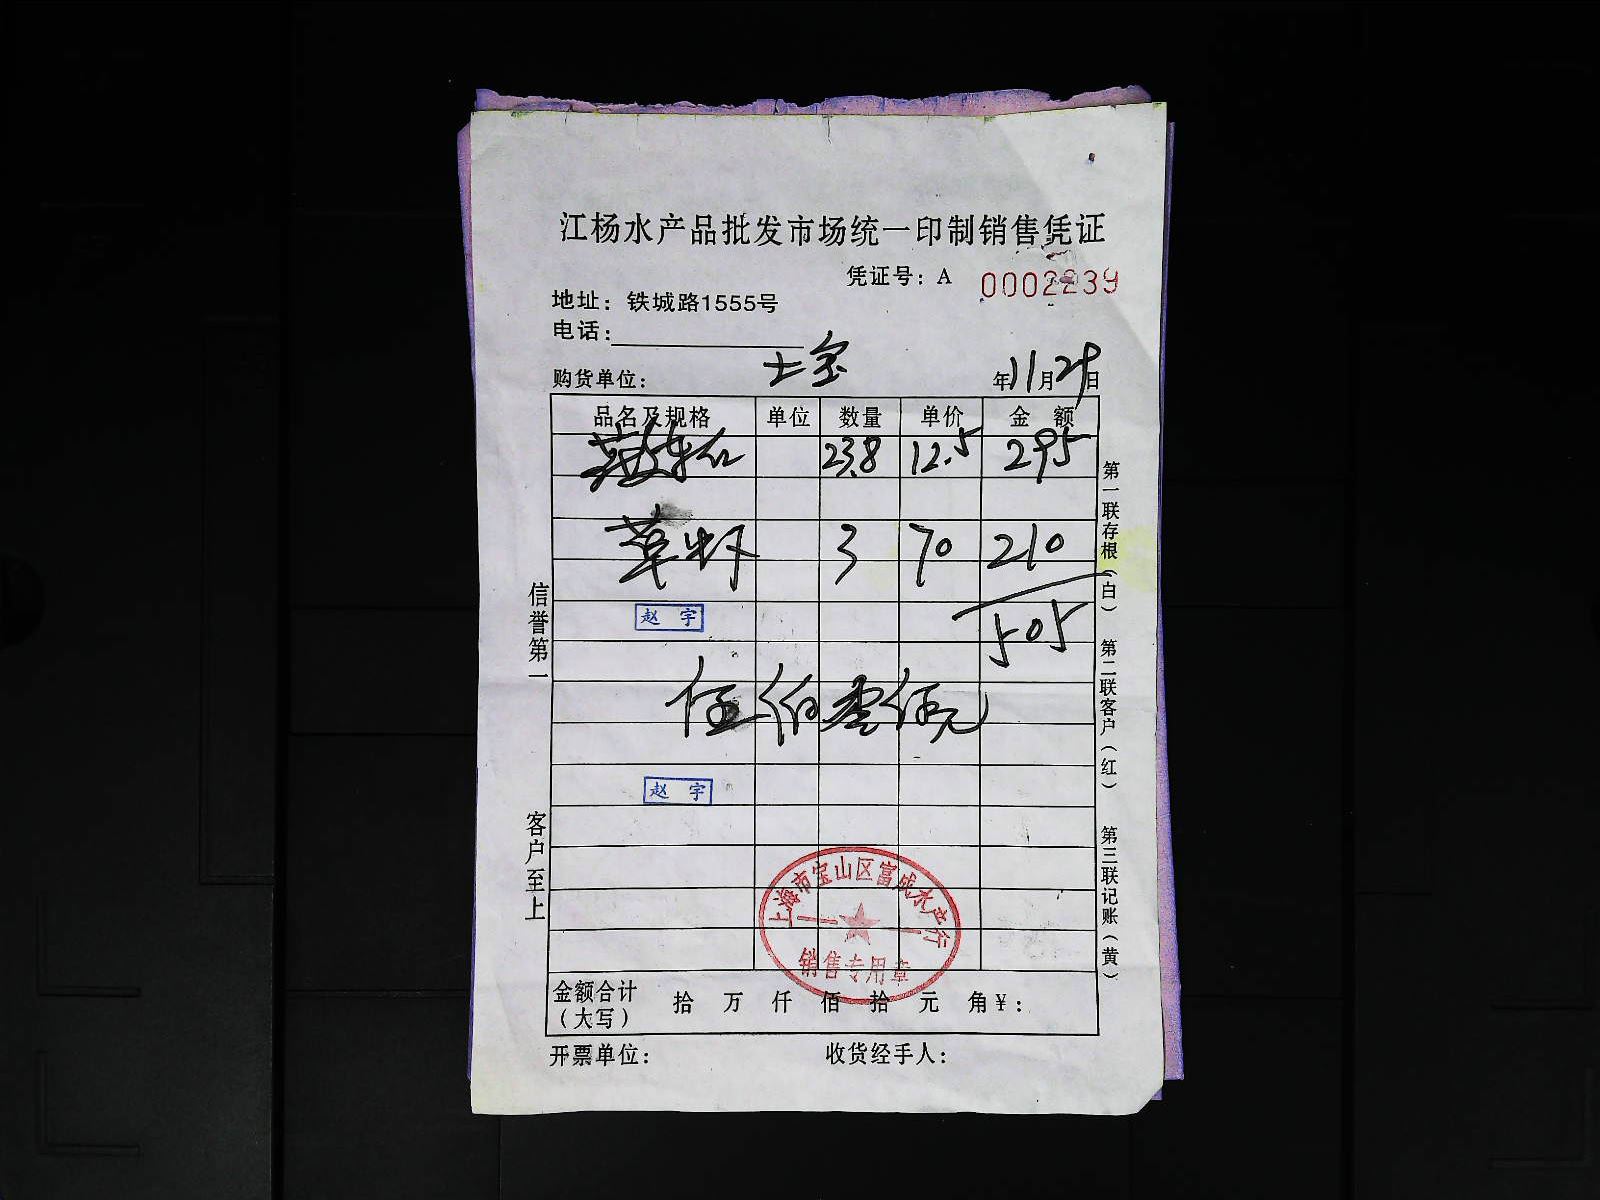 江杨水产品批发市场统一印制销售凭证
凭证号：A 0002239
地址：铁城路1555号
电话：
购货单位： 士宝 年11月29日
品名及规格 单位 数量 单价 金 额
23.8 12.5 295
草虾 3 70 210
505
赵 宇
伍佰零伍元
赵 宇
上海市宝山区富成水产行
销售专用章
金额合计
（大写） 拾 万 仟 佰 拾 元 角¥：
开票单位： 收货经手人：
信誉第一
客户至上
第一联存根（白） 第二联客户（红） 第三联记账（黄）